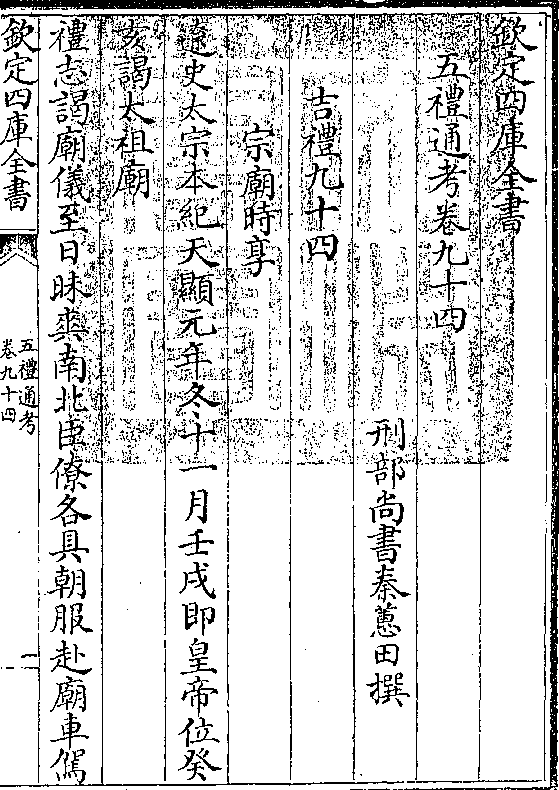 欽定四庫全書
五禮通考卷九十四
刑部尚書秦蕙田撰
吉禮九十四
宗廟時享
遼史太宗本紀天顯元年冬十一月壬戌即皇帝位癸
亥謁太祖廟
禮志謁廟儀至日昧爽南北臣僚各具朝服赴廟車駕
欽定四庫全書
五禮通考
卷九十四
一